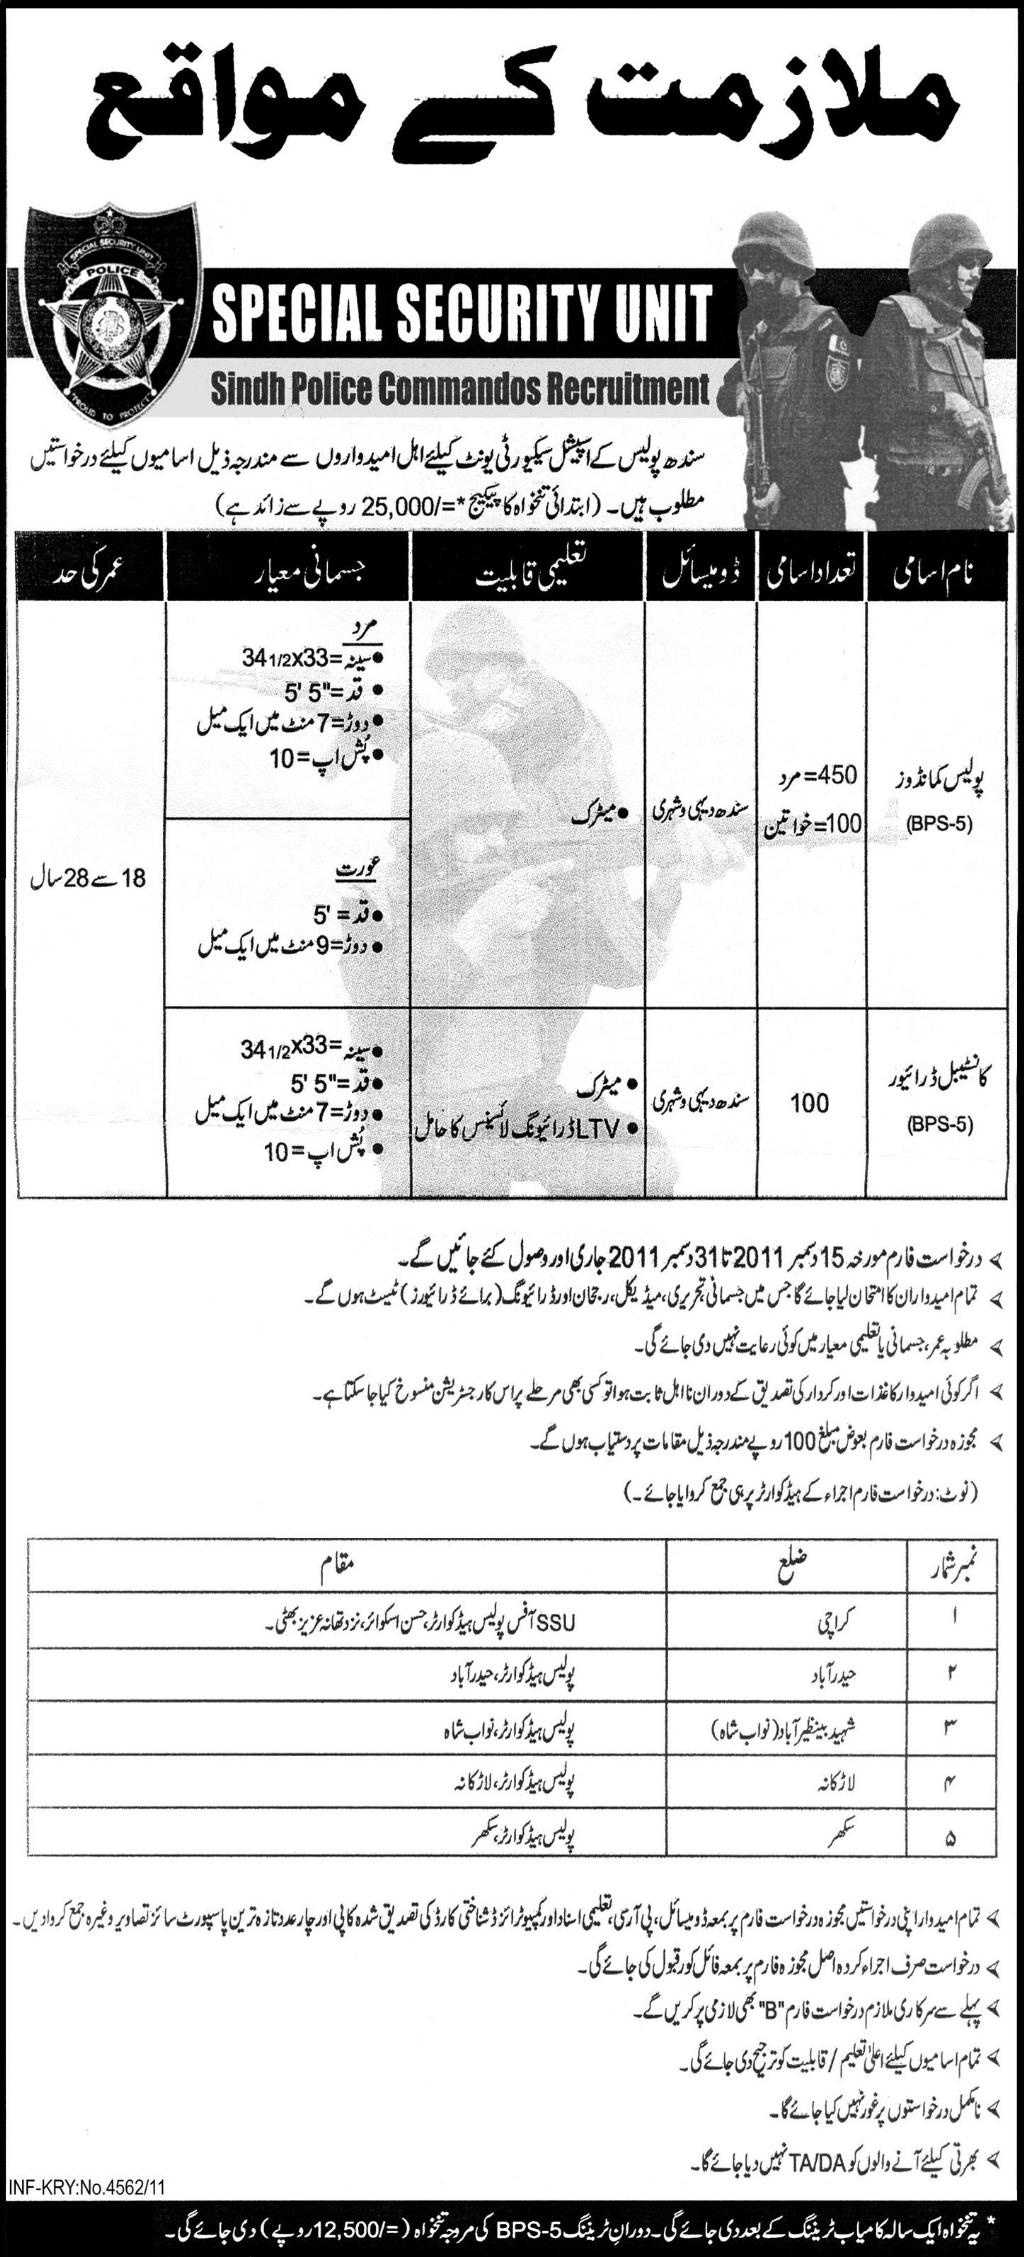 ملازمت کے مواقع
SPECIAL SECURITY UNIT
POLICE
"PROUD TO PROTECT"
SPECIAL SECURITY UNIT
Sindh Police Commandos Recruitment
سندھ پولیس کے اسپیشل سیکیورٹی یونٹ کیلئے اہل امیدواروں سے مندرجہ ذیل اسامیوں کیلئے درخواستیں
مطلوب ہیں۔ (ابتدائی تنخواہ کا پیکیج *=/25,000 روپے سے زائد ہے)
نام اسامی | تعداد اسامی | ڈومیسائل | تعلیمی قابلیت | جسمانی معیار | عمر کی حد
پولیس کمانڈوز
(BPS-5)
450= مرد
100= خواتین
سندھ دیہی و شہری
• میٹرک
مرد
• سینہ=33x34 1/2
• قد="5 '5
• دوڑ=7 منٹ میں ایک میل
• پُش اپ=10
عورت
• قد= '5
• دوڑ=9 منٹ میں ایک میل
18 سے 28 سال
کانسٹیبل ڈرائیور
(BPS-5)
100
سندھ دیہی و شہری
• میٹرک
• LTV ڈرائیونگ لائسینس کا حامل
• سینہ=33x34 1/2
• قد="5 '5
• دوڑ=7 منٹ میں ایک میل
• پُش اپ=10
درخواست فارم مورخہ 15 دسمبر 2011 تا 31 دسمبر 2011 جاری اور وصول کئے جائیں گے۔
تمام امیدواران کا امتحان لیا جائے گا جس میں جسمانی تحریری، میڈیکل، رجحان اور ڈرائیونگ (برائے ڈرائیورز) ٹیسٹ ہوں گے۔
مطلوبہ عمر، جسمانی یا تعلیمی معیار میں کوئی رعایت نہیں دی جائے گی۔
اگر کوئی امیدوار کاغذات اور کردار کی تصدیق کے دوران نا اہل ثابت ہوا تو کسی بھی مرحلے پر اس کا رجسٹریشن منسوخ کیا جا سکتا ہے۔
مجوزہ درخواست فارم بعوض مبلغ 100 روپے مندرجہ ذیل مقامات پر دستیاب ہوں گے۔
(نوٹ: درخواست فارم اجراء کے ہیڈ کوارٹر پر ہی جمع کروایا جائے۔)
نمبر شمار | ضلع | مقام
۱ | کراچی | SSU آفس پولیس ہیڈ کوارٹر، حسن اسکوائر، نزد تھانہ عزیز بھٹی۔
۲ | حیدرآباد | پولیس ہیڈ کوارٹر، حیدرآباد
۳ | شہید بینظیر آباد (نواب شاہ) | پولیس ہیڈ کوارٹر، نواب شاہ
۴ | لاڑکانہ | پولیس ہیڈ کوارٹر، لاڑکانہ
۵ | سکھر | پولیس ہیڈ کوارٹر، سکھر
تمام امیدوار اپنی درخواستیں مجوزہ درخواست فارم پر بمعہ ڈومیسائل، پی آر سی، تعلیمی اسناد اور کمپیوٹرائزڈ شناختی کارڈ کی تصدیق شدہ کاپی اور چار عدد تازہ ترین پاسپورٹ سائز تصاویر وغیرہ جمع کروا دیں۔
درخواست صرف اجراء کردہ اصل مجوزہ فارم پر بمعہ فائل کور قبول کی جائے گی۔
پہلے سے سرکاری ملازم درخواست فارم "B" بھی لازمی پر کریں گے۔
تمام اسامیوں کیلئے اعلیٰ تعلیم / قابلیت کو ترجیح دی جائے گی۔
نامکمل درخواستوں پر غور نہیں کیا جائے گا۔
بھرتی کیلئے آنے والوں کو TA/DA نہیں دیا جائے گا۔
INF-KRY:No.4562/11
* یہ تنخواہ ایک سالہ کامیاب ٹریننگ کے بعد دی جائے گی۔ دوران ٹریننگ BPS-5 کی مروجہ تنخواہ (=/12,500 روپے) دی جائے گی۔